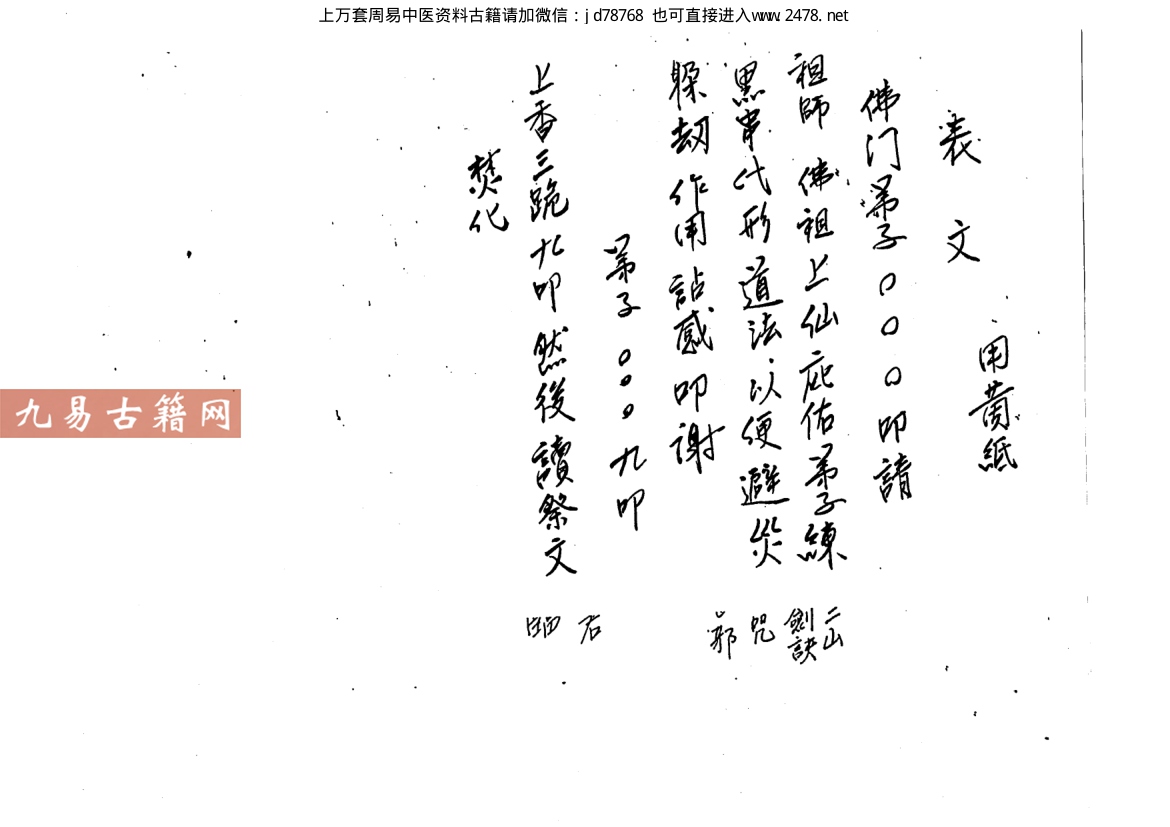 上万套周易中医资料古籍请加微信：jd78768 也可直接进入www.2478.net
用黄紙
表文
佛门弟子〇〇〇叩請
祖師 佛祖上仙庇佑弟子練
黑串代形道法以便避災
躱劫作用 感叩谢
弟子〇〇〇九叩
上香三跪九叩然後讀祭文
焚化
二山
劍訣
咒
右
九易古籍网